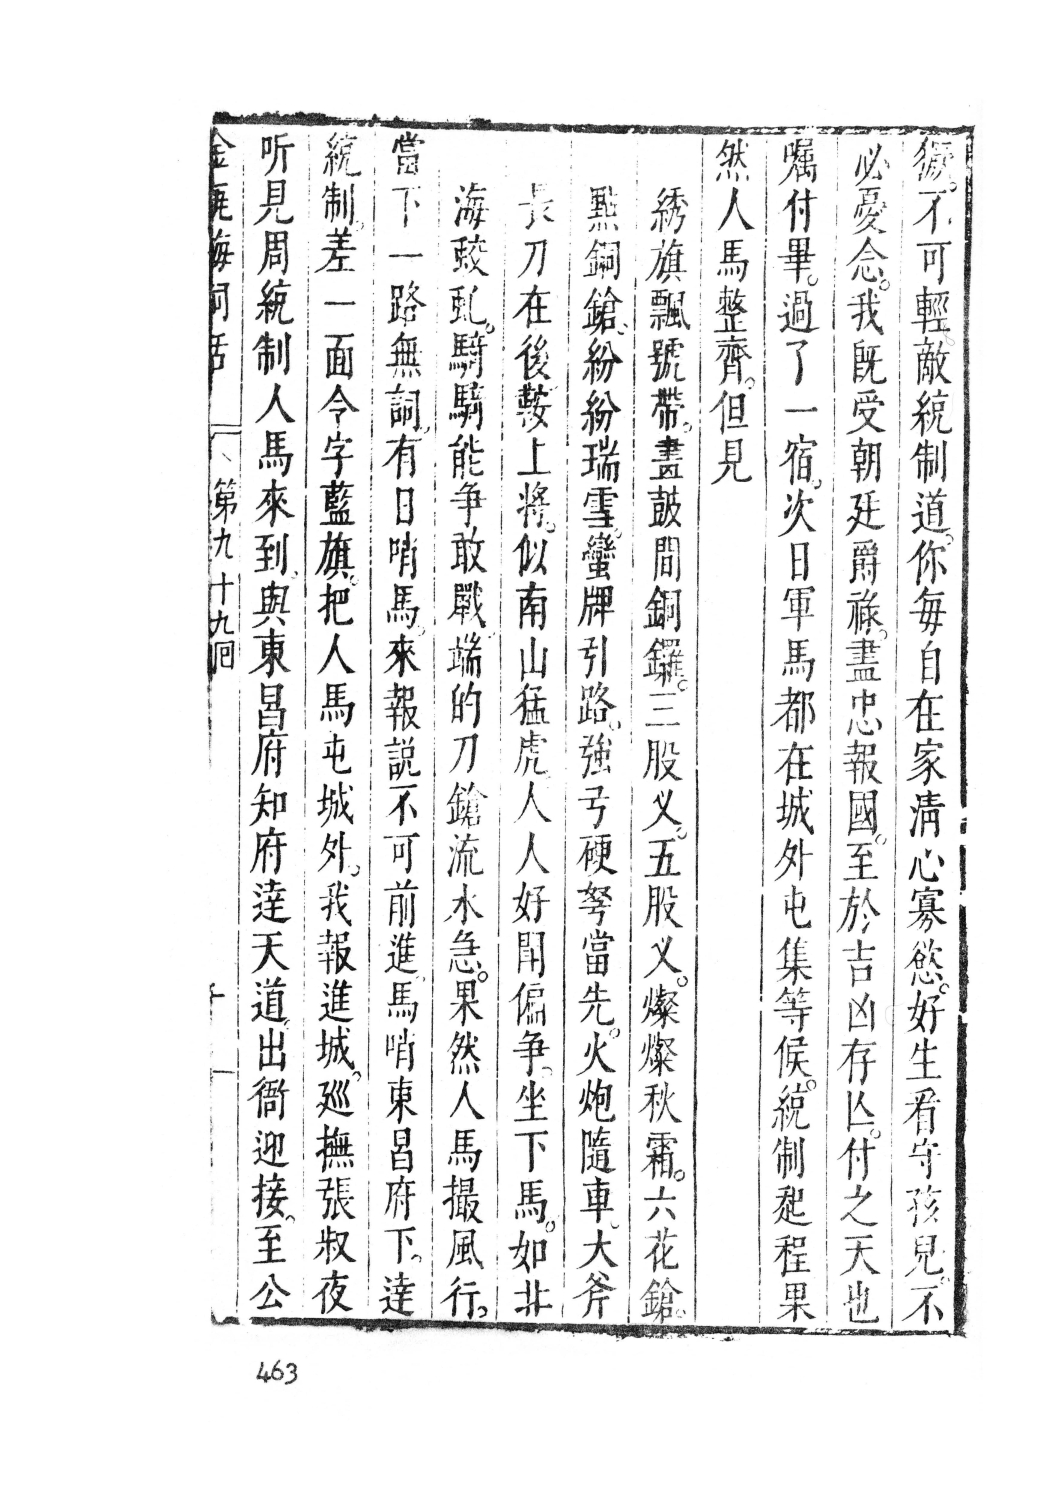 獗。不可輕敵。統制道。你每自在家清心寡慾。好生看守孩兒。不
必憂念。我既受朝廷爵祿。盡忠報國。至於吉凶存亾。付之天也
囑付畢。過了一宿。次日軍馬都在城外屯集等候。統制起程。果
然人馬整齊。但見
綉旗飄號帶。畫鼓間銅鑼。三股义。五股义。燦燦秋霜。六花鎗。
點銅鎗。紛紛瑞雪。蠻牌引路。強弓硬弩當先。火炮隨車。大斧
長刀在後。鞍上將。似南山猛虎。人人好鬪偏争。坐下馬。如北
海蛟虬。騎騎能争敢戰。端的刀鎗流水急。果然人馬撮風行。
當下一路無詞。有日哨馬來報說。不可前進。馬哨東昌府下。達
統制。差一面令字藍旗。把人馬屯城外。我報進城。巡撫張叔夜
听見周統制人馬來到。與東昌府知府達天道。出衙迎接。至公
金瓶梅詞話 第九十九囘 十一
463